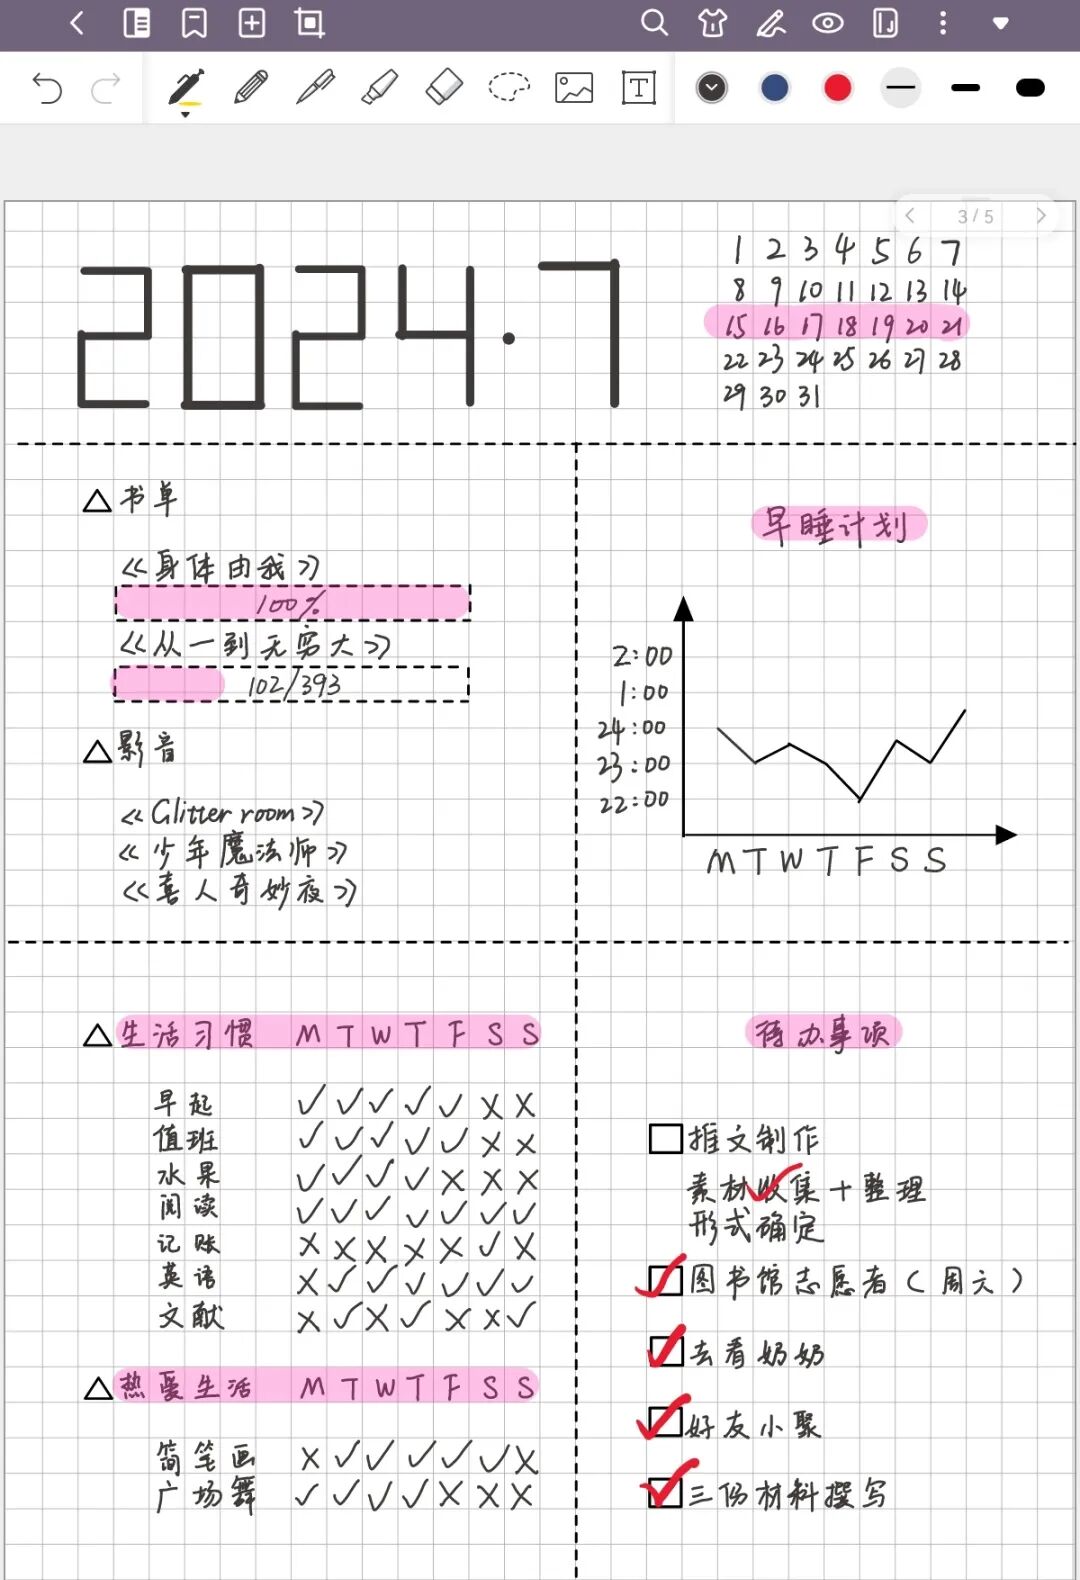 3/5
2024.7
1 2 3 4 5 6 7
8 9 10 11 12 13 14
15 16 17 18 19 20 21
22 23 24 25 26 27 28
29 30 31
△书单
《身体由我》
100%
《从一到无穷大》
102/393
△影音
《Glitter room》
《少年魔法师》
《喜人奇妙夜》
早睡计划
2:00
1:00
24:00
23:00
22:00
M T W T F S S
△生活习惯 M T W T F S S
早起 ✓ ✓ ✓ ✓ ✓ × ×
值班 ✓ ✓ ✓ ✓ ✓ × ×
水果 ✓ ✓ ✓ ✓ × × ×
阅读 ✓ ✓ ✓ ✓ ✓ ✓ ✓
记账 × × × × × ✓ ×
英语 × ✓ ✓ ✓ ✓ ✓ ✓
文献 × ✓ × ✓ × × ✓
△热爱生活 M T W T F S S
简笔画 × ✓ ✓ ✓ ✓ ✓ ×
广场舞 ✓ ✓ ✓ ✓ × × ×
待办事项
推文制作
素材收集+整理
形式确定
图书馆志愿者(周六)
去看奶奶
好友小聚
三份材料撰写